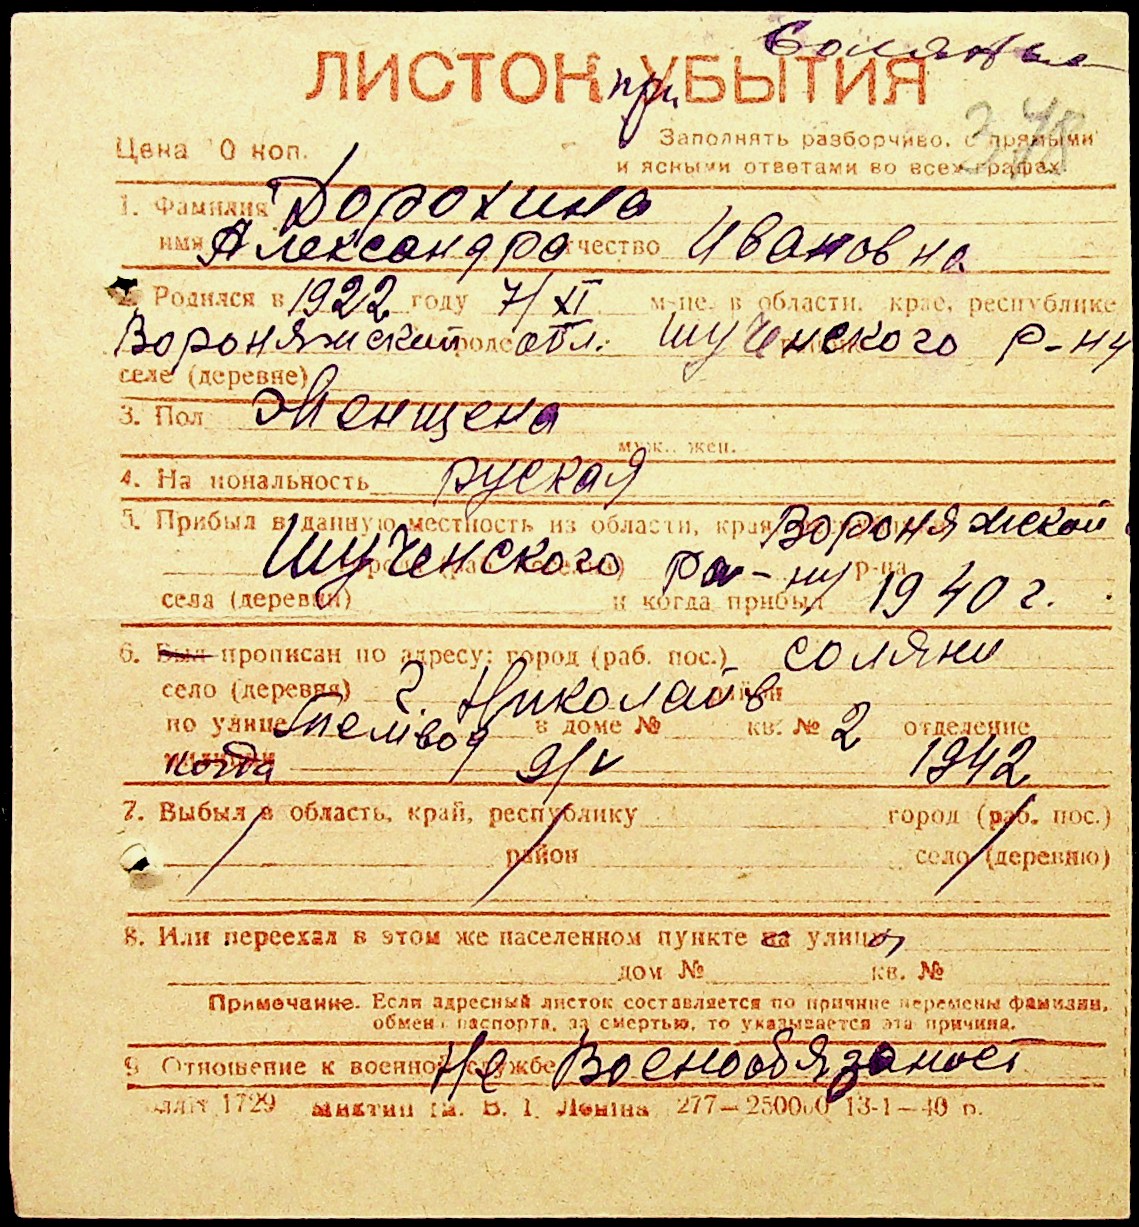 Соляные
ЛИСТОК при УБЫТИЯ
378
Цена 10 коп.
Заполнять разборчиво, с прямыми
и ясными ответами во всех графах
1. Фамилия Дорохина
имя Александра отчество Ивановна
2. Родился в 1922 году 7/XI м-це, в области, крае, республике
Вороняжский городе обл. Шученского р-ну
селе (деревне)
3. Пол Женщена
муж., жен.
4. Национальность руская
5. Прибыл в данную местность из области, края, Вороняжской
Шученского ра-ну р-на
села (деревни) и когда прибыл 1940 г.
6. Был прописан по адресу: город (раб. пос.) соляни
село (деревня) г. Николайв район
по улице Темвод в доме № кв. № 2 отделение
милиции когда 9/V 1942
7. Выбыл в область, край, республику город (раб. пос.)
район село (деревню)
8. Или переехал в этом же населенном пункте на улицу
дом № кв. №
Примечание. Если адресный листок составляется по причине перемены фамилии,
обмена паспорта, за смертью, то указывается эта причина.
9. Отношение к военной службе Не Военообязаност
1729 ім. В. І. Леніна 277—250000 13-1—40 р.